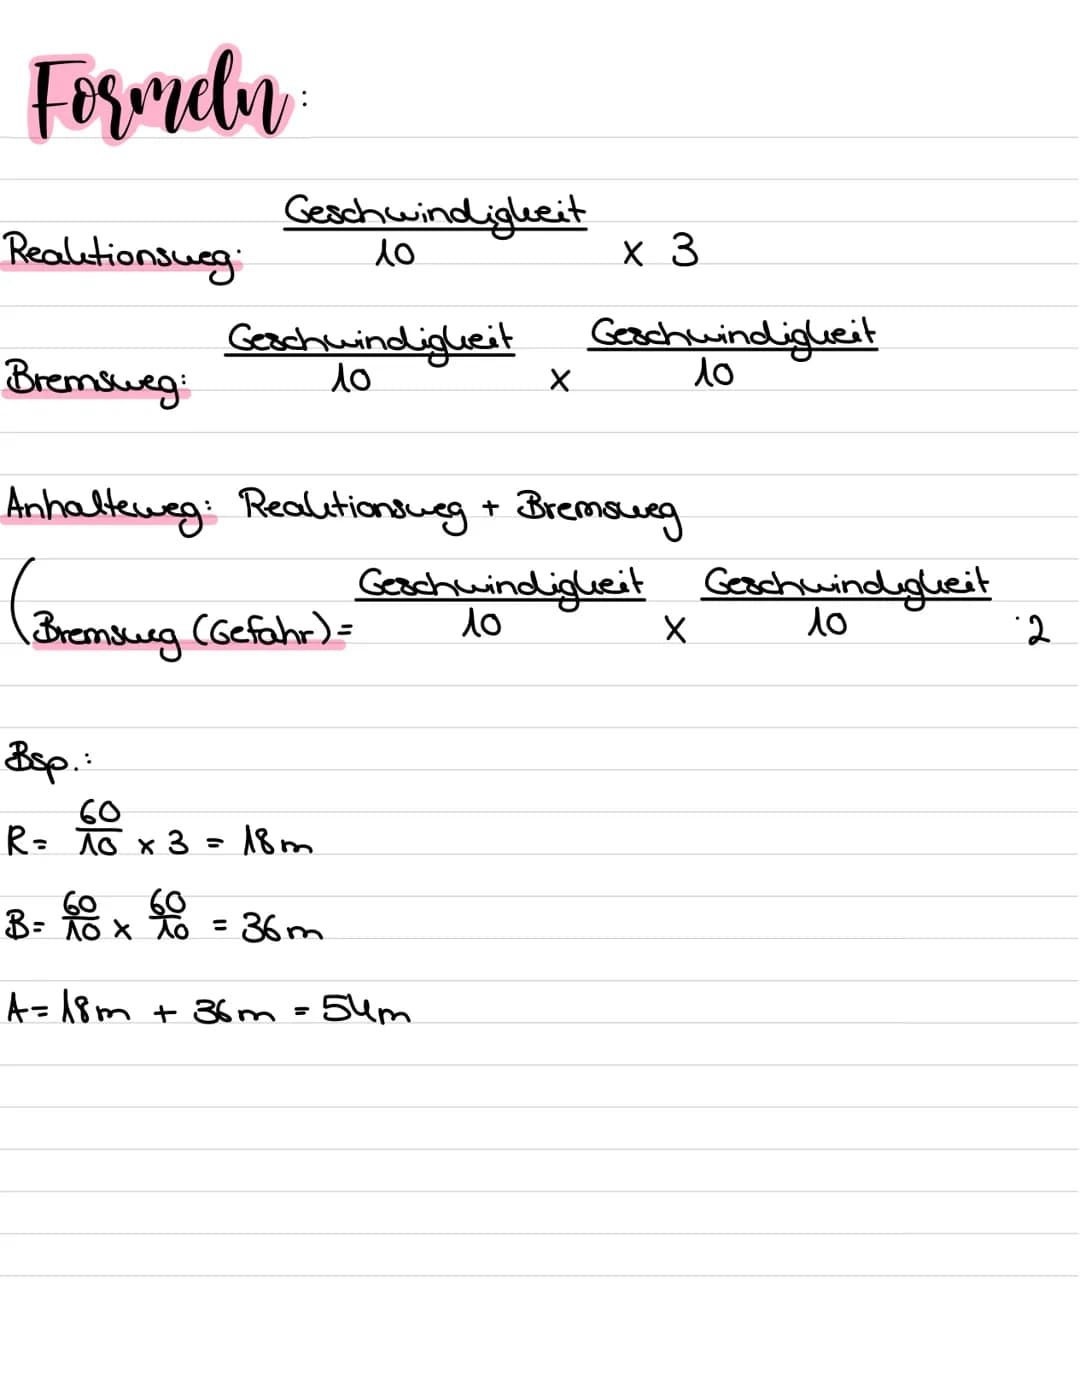 Formeln:
Reaktionsweg: Geschwindigkeit/10 x 3
Bremsweg: Geschwindigkeit/10 x Geschwindigkeit/10
Anhalteweg: Reaktionsweg + Bremsweg
(Bremsweg (Gefahr) = Geschwindigkeit/10 x Geschwindigkeit/10 · 2
Bsp.:
R = 60/10 x 3 = 18m
B = 60/10 x 60/10 = 36m
A = 18m + 36m = 54m